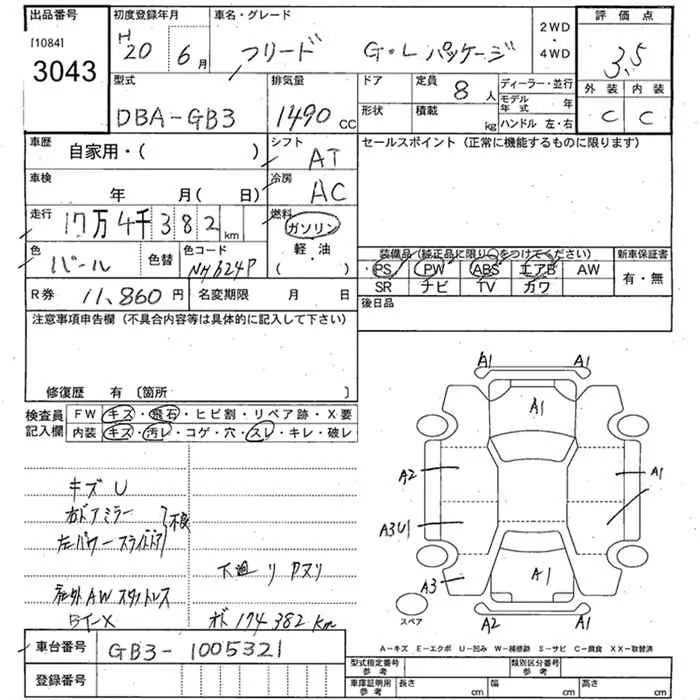 出品番号 初度登録年月 車名・グレード 2WD・4WD 評価点
[1084]
3043
H20年 6月 フリード G・L パッケージ 3.5
外装 内装
C C
型式 排気量 ドア 定員 8人 ディーラー・並行
DBA-GB3 1490cc 形状 積載 kg モデル年式 年
ハンドル 左・右
車歴 シフト セールスポイント (正常に機能するものに限ります)
自家用・( ) AT
車検 冷房
年 月(日) AC
走行 17万4千382km 燃料 ガソリン
軽・油
( )
色 パール 色替 色コード NH624P
装備品(純正品に限り○をつけてください) 新車保証書
PS PW ABS エアB AW 有・無
SR ナビ TV カワ
R券 11,860円 名変期限 月 日
後日品
注意事項申告欄 (不具合内容等は具体的に記入して下さい)
修復歴 有 [箇所 ]
検査員記入欄 FW キズ・飛石・ヒビ割・リペア跡・X要
内装 キズ・汚レ・コゲ・穴・スレ・キレ・破レ
キズ U
右ドアミラー
左パワースライドドア 不良
下廻リ サビリ
社外AW スタットレス
オド 174382km
車台番号 GB3-1005321
登録番号
A1 A1
A1
A2 A1
A3U1
A3 A1
A2 A1
スペア
A-キズ E-エクボ U-凹み W-補修跡 S-サビ C-腐食 XX-取替済
型式指定番号 参考 類別区分番号 参考
車庫証明用 参考 長さ cm 幅 cm 高さ cm